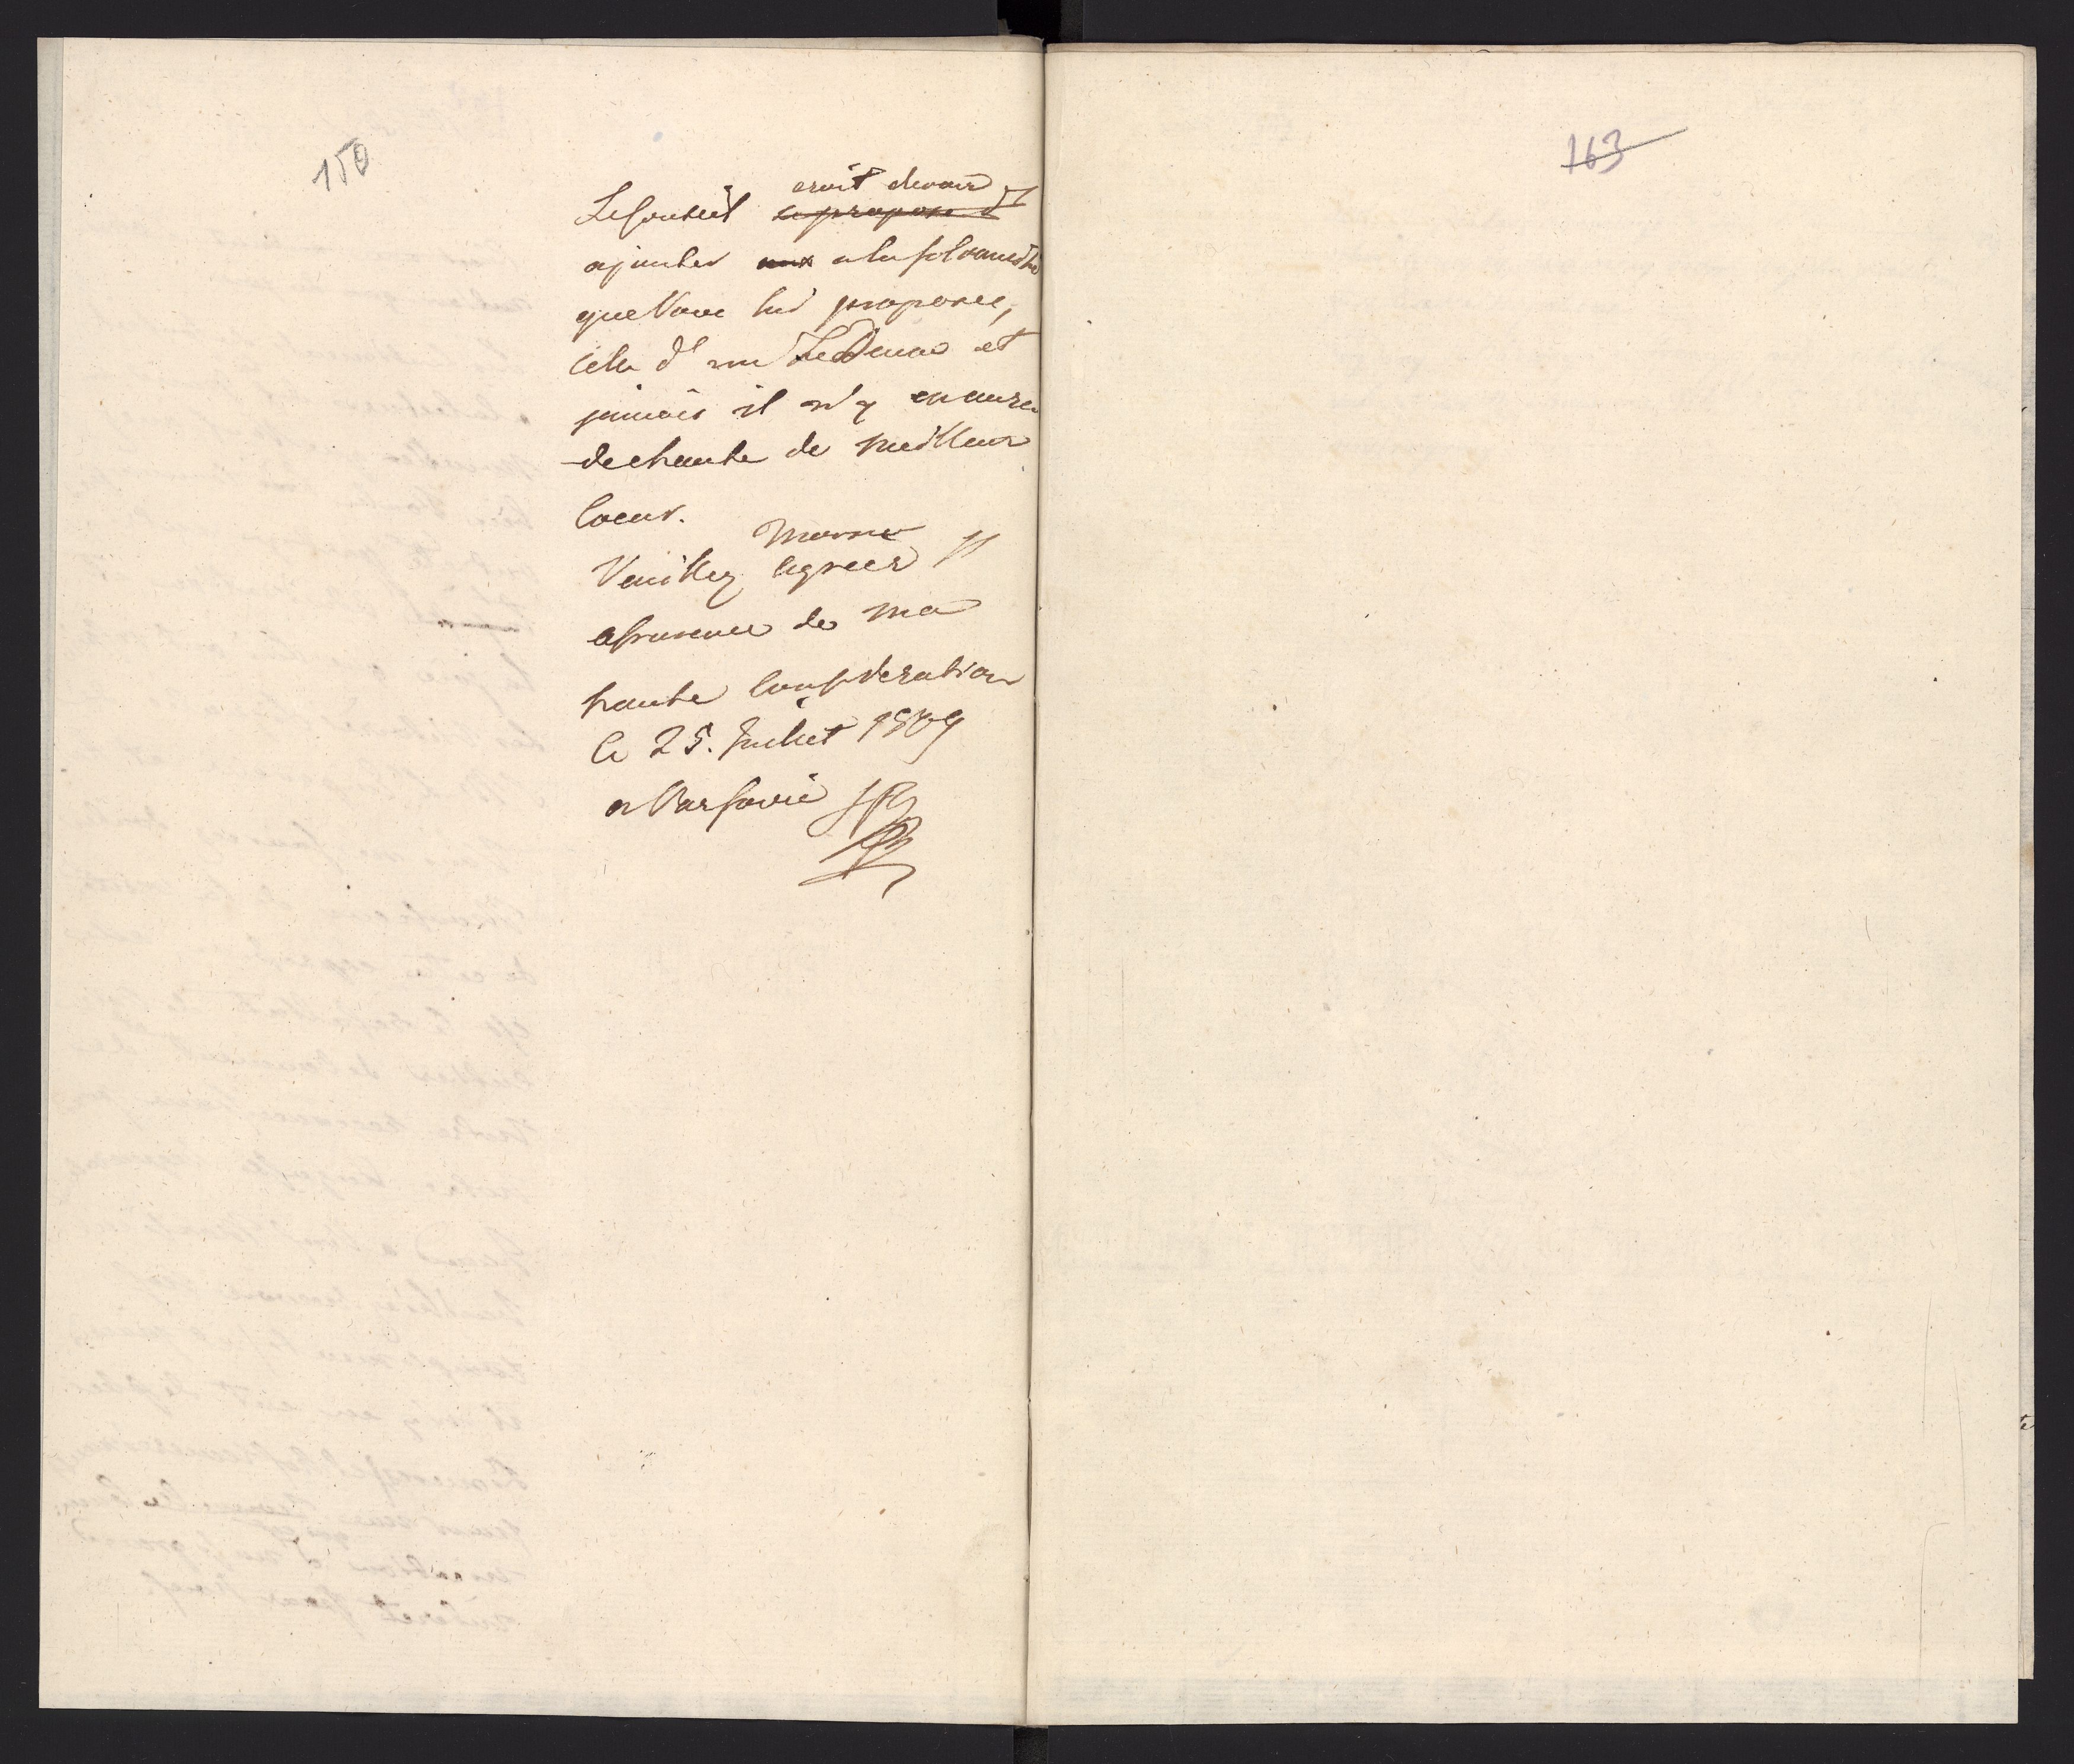 150
163
croit devoir
Le Conseil se propose d
ajouter aux a la solemnité
que Vous lui proposez,
celle d'un TeDeum et
jamais il n'y en aura
de chanté de meilleur
Coeur.
Veuillez agréer
assurence de ma
haute Consideration
le 25. Juliet 1809
a Varsovie